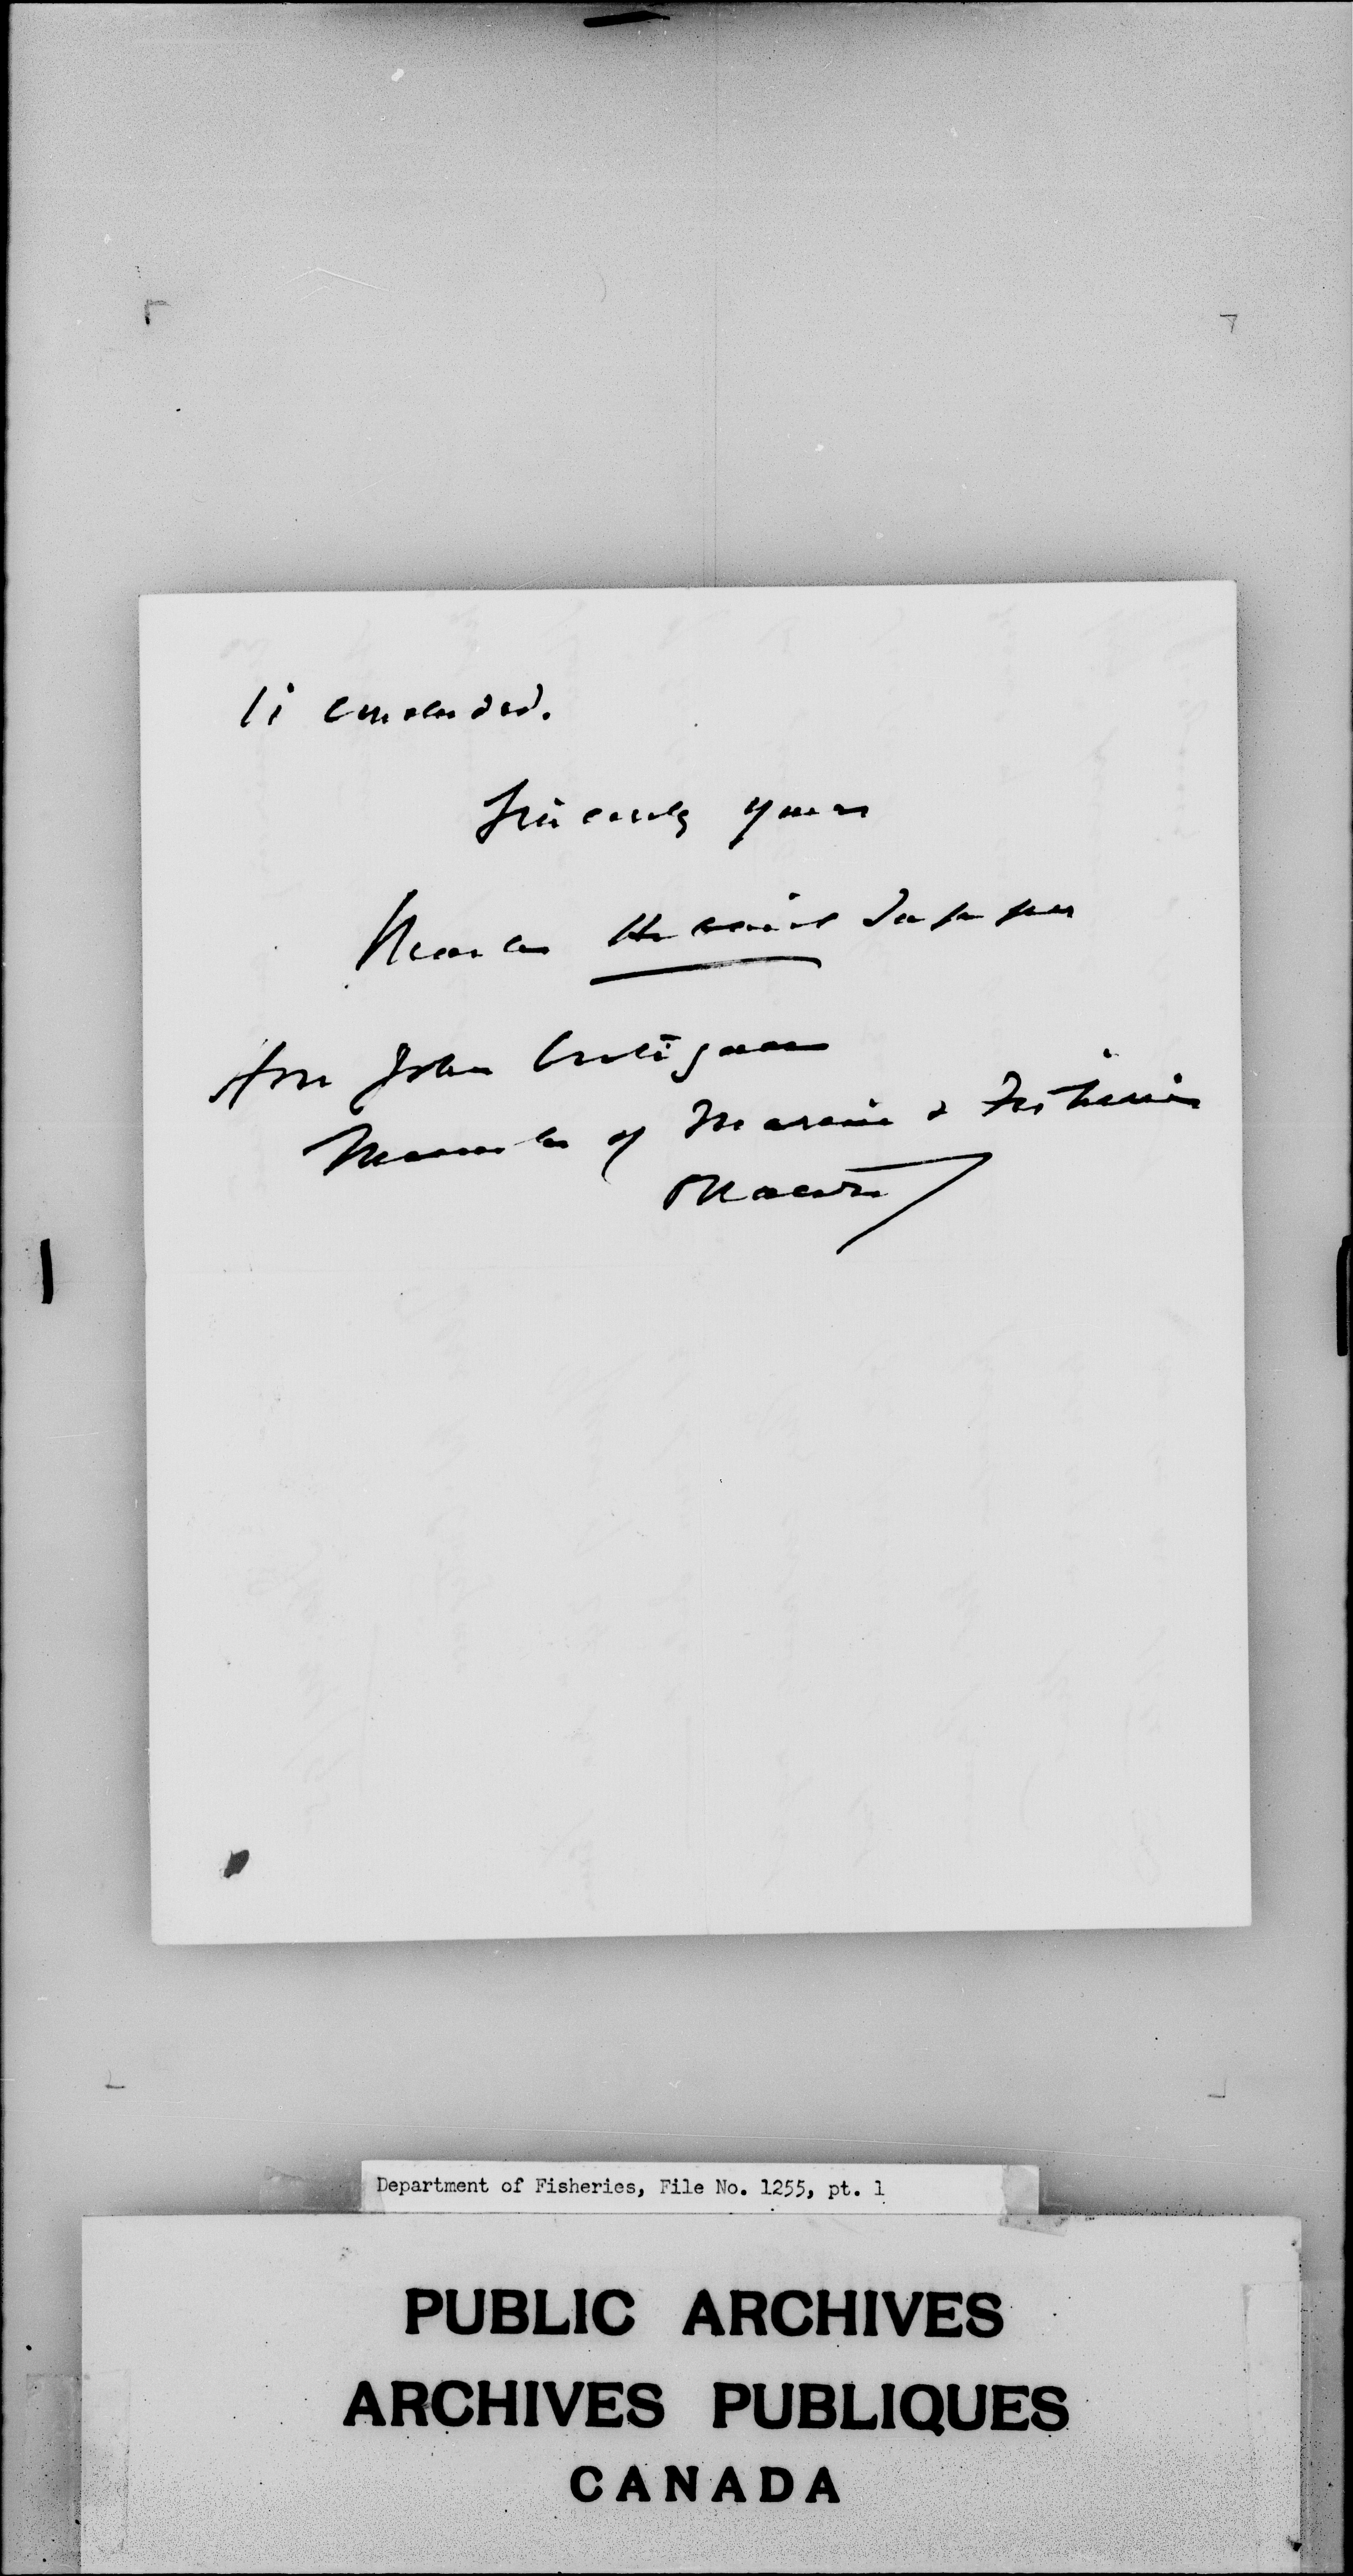 is concluded.
Sincerely yours
Charles Hibbert Tupper
Hon John Costigan
Minister of Marine & Fisheries
Ottawa
Department of Fisheries, File No. 1255, pt. 1
PUBLIC ARCHIVES
ARCHIVES PUBLIQUES
CANADA